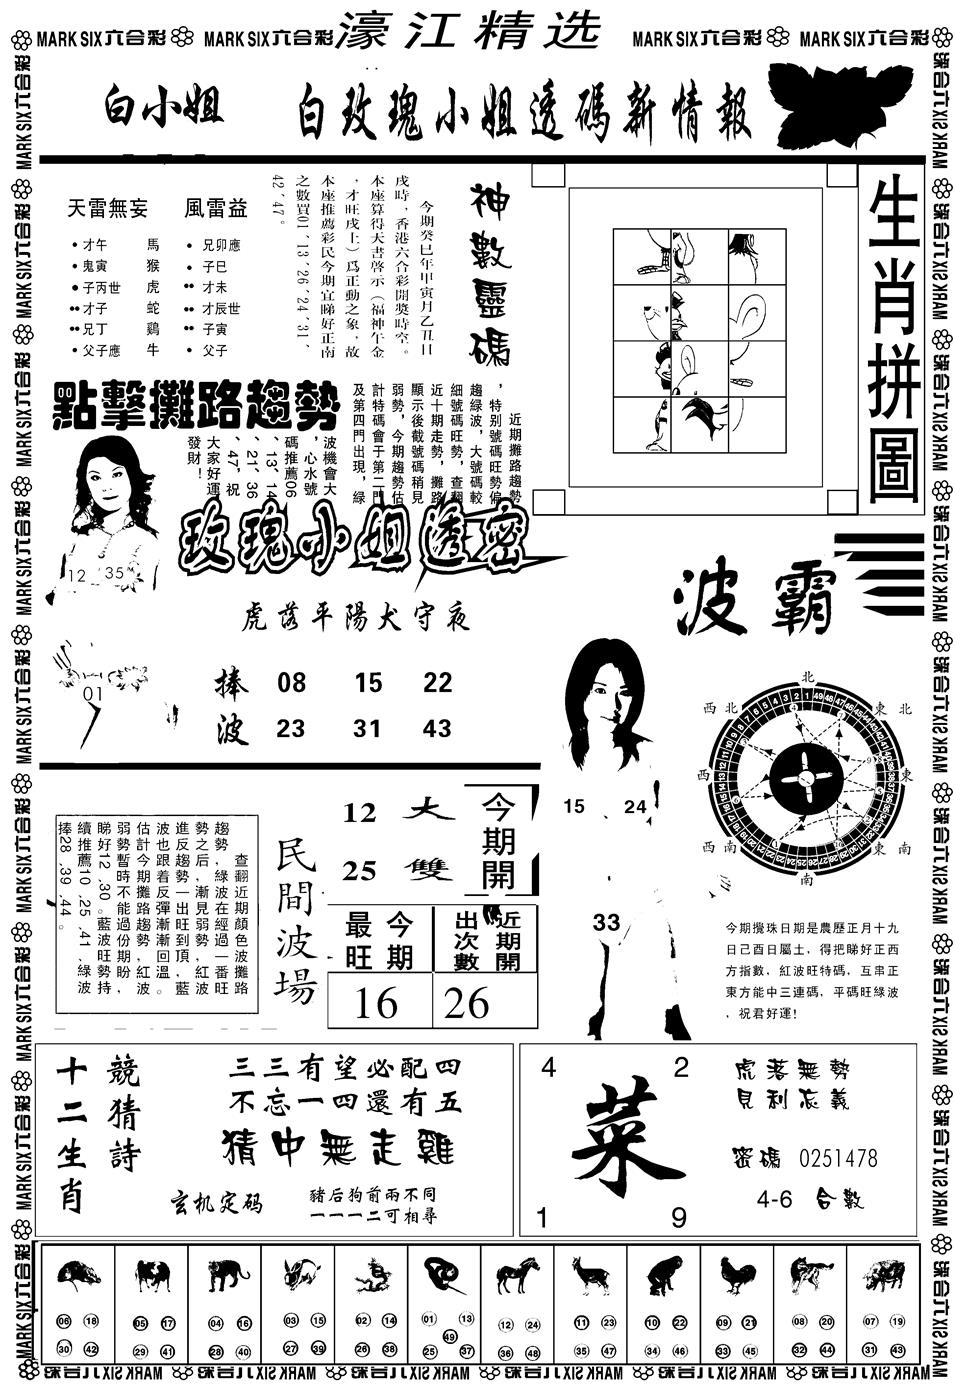 MARK SIX六合彩 MARK SIX六合彩 濠江精选 MARK SIX六合彩 MARK SIX六合彩
白小姐 白玫瑰小姐透碼新情報
天雷無妄 風雷益
才午 馬 兄卯應
鬼寅 猴 子巳
子丙世 虎 才未
才子 蛇 才辰世
兄丁 鷄 子寅
父子應 牛 父子
神數靈碼
今期癸巳年甲寅月乙丑日
戌時，香港六合彩開獎時空。
本座算得天書啓示（福神午金
，才旺戌土）爲正動之象，故
本座推薦彩民今期宜睇好正南
之數買01、13、26、24、31、
42、47。
生肖拼圖
點擊攤路趨勢
近期攤路趨勢
，特別號碼旺勢偏
趨綠波，大號碼較
細號碼旺勢，查翻
近十期走勢，攤路
顯示後截號碼稍見
弱勢，今期趨勢估
計特碼會于第二門
及第四門出現，綠
波機會大
，心水號
碼推薦06
、13、14
、21、36
、47，祝
大家好運
發財！
12 35
01
玫瑰小姐透密
虎落平陽犬守夜
捧 08 15 22
波 23 31 43
波霸
15 24
33
北
西北 東北
西 東
西南 東南
南
今期攪珠日期是農歷正月十九
日己酉日屬土，得把睇好正西
方指數，紅波旺特碼，互串正
東方能中三連碼，平碼旺綠波
，祝君好運！
查翻近期顏色波攤路
趨勢，綠波在經過一番旺
勢之后，漸見弱勢，紅波
進反趨勢一出旺到頂，藍
波也跟着反彈漸漸回溫。
估計今期攤路趨勢紅波
弱勢暫時不能過份期盼，
睇好12、30。藍波旺勢持
續推薦10、25、41，綠波
捧28、39、44。
民間波場
12 大
25 雙
今期開
今期最旺
近期開出次數
16 26
競猜詩
十二生肖
三三有望必配四
不忘一四還有五
猜中無走雞
玄机定码
豬后狗前兩不同
一一一二可相尋
4 2
菜
1 9
虎落無勢
見利忘義
密碼 0251478
4-6 合數
06 18 05 17 04 16 03 15 02 14 01 13 12 24 11 23 10 22 09 21 08 20 07 19
49
30 42 29 41 28 40 27 39 26 38 25 37 36 48 35 47 34 46 33 45 32 44 31 43
MARK SIX六合彩